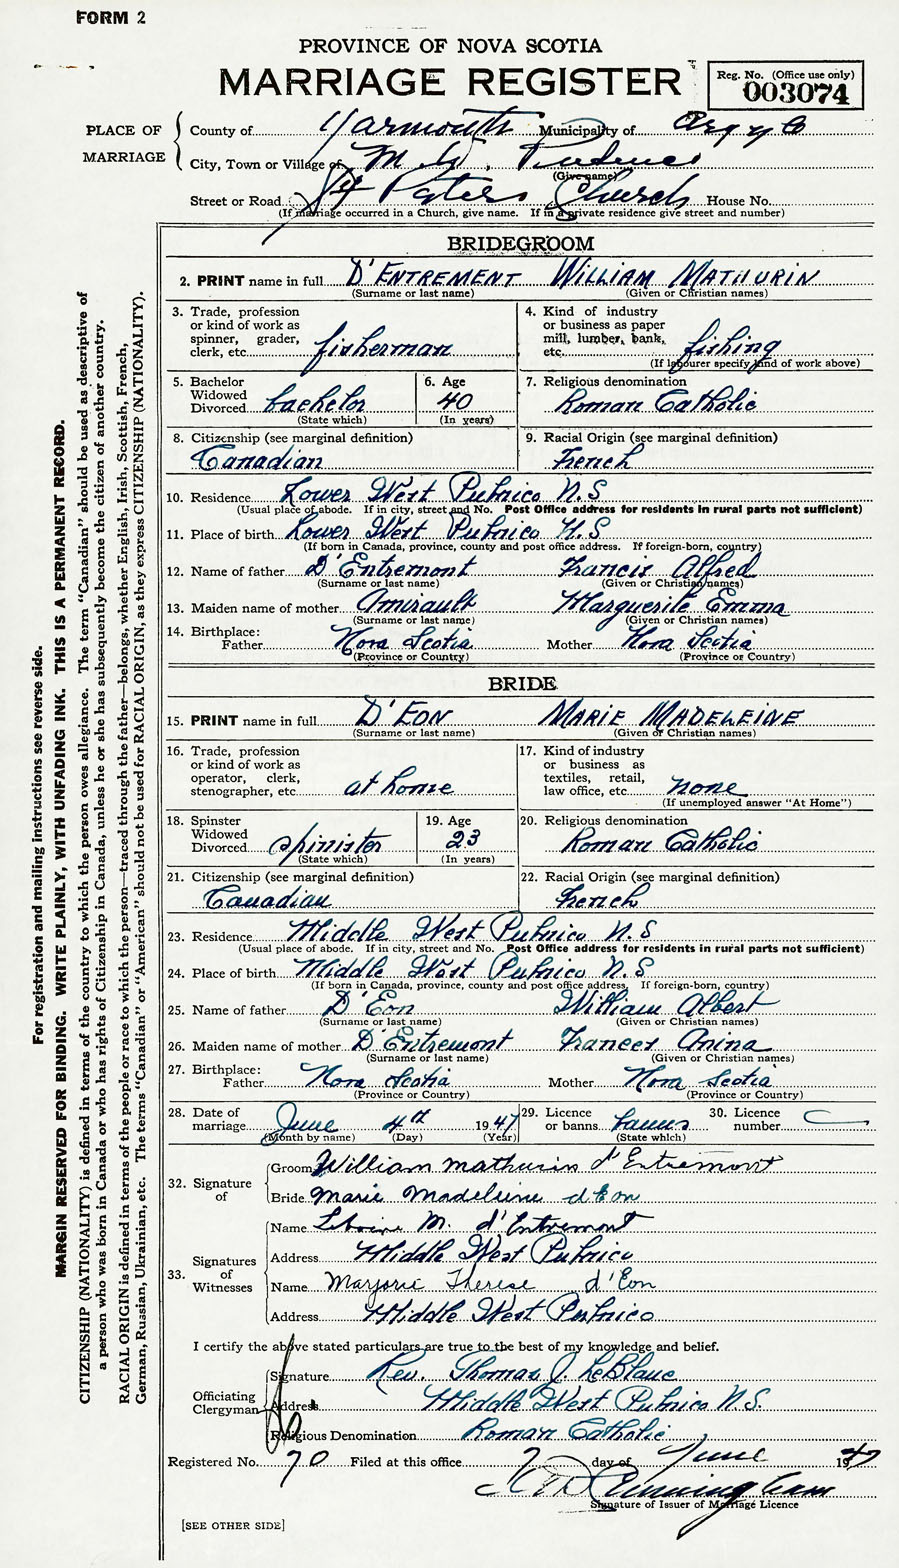 FORM 2
PROVINCE OF NOVA SCOTIA
MARRIAGE REGISTER
Reg. No. (Office use only)
003074
PLACE OF MARRIAGE
County of Yarmouth Municipality of Argyle
City, Town or Village of M. W. Pubnico
(Give name)
Street or Road St Peters Church House No.
(If marriage occurred in a Church, give name. If in a private residence give street and number)
BRIDEGROOM
2. PRINT name in full D'ENTREMENT WILLIAM MATHURIN
(Surname or last name) (Given or Christian names)
3. Trade, profession or kind of work as spinner, grader, clerk, etc. fisherman
4. Kind of industry or business as paper mill, lumber, bank, etc. fishing
(If labourer specify kind of work above)
5. Bachelor Widowed Divorced bachelor
(State which)
6. Age 40
(In years)
7. Religious denomination
Roman Catholic
8. Citizenship (see marginal definition)
Canadian
9. Racial Origin (see marginal definition)
French
10. Residence Lower West Pubnico N.S
(Usual place of abode. If in city, street and No. Post Office address for residents in rural parts not sufficient)
11. Place of birth Lower West Pubnico N.S
(If born in Canada, province, county and post office address. If foreign-born, country)
12. Name of father D'Entremont Francis Alfred
(Surname or last name) (Given or Christian names)
13. Maiden name of mother Amirault Marguerite Emma
(Surname or last name) (Given or Christian names)
14. Birthplace:
Father Nova Scotia Mother Nova Scotia
(Province or Country) (Province or Country)
BRIDE
15. PRINT name in full D'EON MARIE MADELEINE
(Surname or last name) (Given or Christian names)
16. Trade, profession or kind of work as operator, clerk, stenographer, etc. at home
17. Kind of industry or business as textiles, retail, law office, etc. none
(If unemployed answer "At Home")
18. Spinster Widowed Divorced spinister
(State which)
19. Age 23
(In years)
20. Religious denomination
Roman Catholic
21. Citizenship (see marginal definition)
Canadian
22. Racial Origin (see marginal definition)
French
23. Residence Middle West Pubnico N.S
(Usual place of abode. If in city, street and No. Post Office address for residents in rural parts not sufficient)
24. Place of birth Middle West Pubnico N.S
(If born in Canada, province, county and post office address. If foreign-born, country)
25. Name of father D'Eon William Albert
(Surname or last name) (Given or Christian names)
26. Maiden name of mother D'Entremont Frances Anina
(Surname or last name) (Given or Christian names)
27. Birthplace:
Father Nova Scotia Mother Nova Scotia
(Province or Country) (Province or Country)
28. Date of marriage June 4th 1947
(Month by name) (Day) (Year)
29. Licence or banns banns
(State which)
30. Licence number
32. Signature of
Groom William Mathurin d'Entremont
Bride Marie Madeleine d'Eon
33. Signatures of Witnesses
Name M. d'Entremont
Address Middle West Pubnico
Name Marjorie Therese d'Eon
Address Middle West Pubnico
I certify the above stated particulars are true to the best of my knowledge and belief.
Officiating Clergyman
Signature Rev. Thomas J. LeBlanc
Address Middle West Pubnico N.S.
Religious Denomination Roman Catholic
Registered No. 70 Filed at this office 7 day of June 1947
Cunningham
Signature of Issuer of Marriage Licence
[SEE OTHER SIDE]
For registration and mailing instructions see reverse side.
MARGIN RESERVED FOR BINDING. WRITE PLAINLY, WITH UNFADING INK. THIS IS A PERMANENT RECORD.
CITIZENSHIP (NATIONALITY) is defined in terms of the country to which the person owes allegiance. The term "Canadian" should be used as descriptive of
a person who was born in Canada or who has rights of Citizenship in Canada, unless he or she has subsequently become the citizen of another country.
RACIAL ORIGIN is defined in terms of the people or race to which the person—traced through the father—belongs, whether English, Irish, Scottish, French,
German, Russian, Ukrainian, etc. The terms "Canadian" or "American" should not be used for RACIAL ORIGIN, as they express CITIZENSHIP (NATIONALITY).